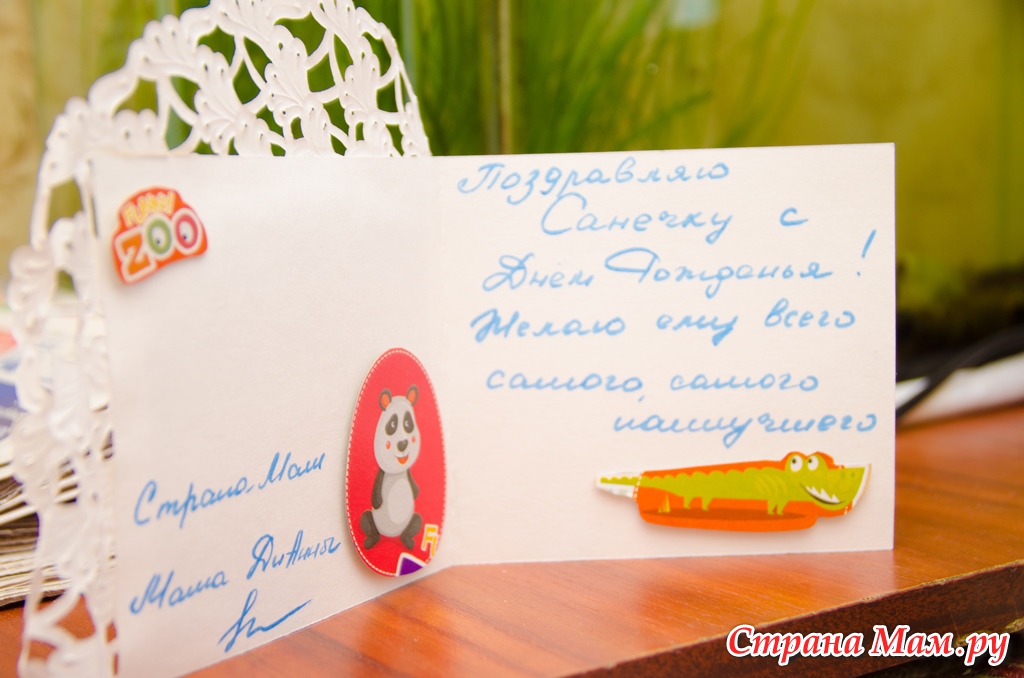 FUNNY
ZOO
Страна Мам
Маша ДиАнны
Поздравляю
Санечку с
Днём Рожденья!
Желаю ему всего
самого, самого
наилучшего
Страна Мам.ру